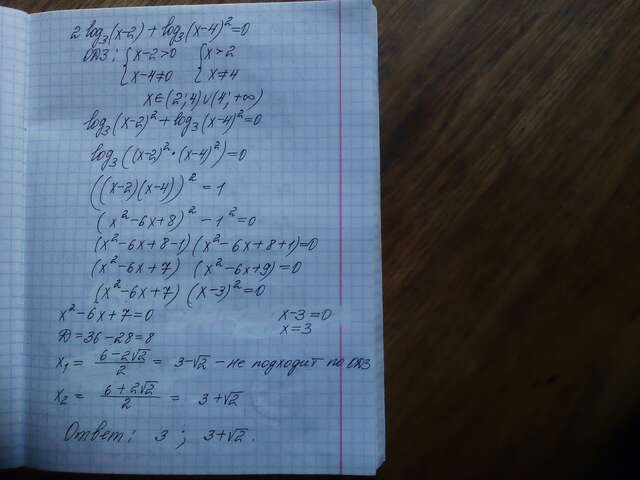 2 log₃(x-2) + log₃(x-4)² = 0
ОДЗ: { x-2>0 { x>2
x-4≠0 x≠4
x∈(2;4)∪(4;+∞)
log₃(x-2)² + log₃(x-4)² = 0
log₃((x-2)²·(x-4)²) = 0
((x-2)(x-4))² = 1
(x²-6x+8)² - 1² = 0
(x²-6x+8-1)(x²-6x+8+1)=0
(x²-6x+7) (x²-6x+9) = 0
(x²-6x+7) (x-3)² = 0
x²-6x+7=0 x-3=0
D=36-28=8 x=3
x₁ = (6-2√2)/2 = 3-√2 - не подходит по ОДЗ
x₂ = (6+2√2)/2 = 3+√2
Ответ: 3 ; 3+√2.